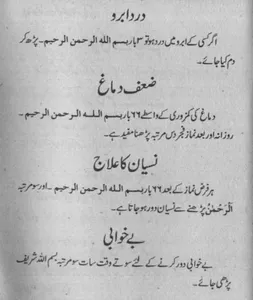 درد ابرو
اگر کسی کے ابرو میں درد ہو تو ۳ بار بسم اللہ الرحمن الرحیم - پڑھ کر
دم کیا جائے۔
ضعف دماغ
دماغ کی کمزوری کے واسطے ۶۶ بار بسم اللہ الرحمن الرحیم -
روزانہ اور بعد نماز فجر دس مرتبہ پڑھنا مفید ہے۔
نسیان کا علاج
ہر فرض نماز کے بعد ۶۶ بار بسم اللہ الرحمن الرحیم - اور سو مرتبہ
اَلرَّحْمٰنُ پڑھنے سے نسیان دور ہو جاتا ہے۔
بے خوابی
بے خوابی دور کرنے کے لئے سوتے وقت سات سو مرتبہ بسم اللہ شریف
پڑھی جائے۔